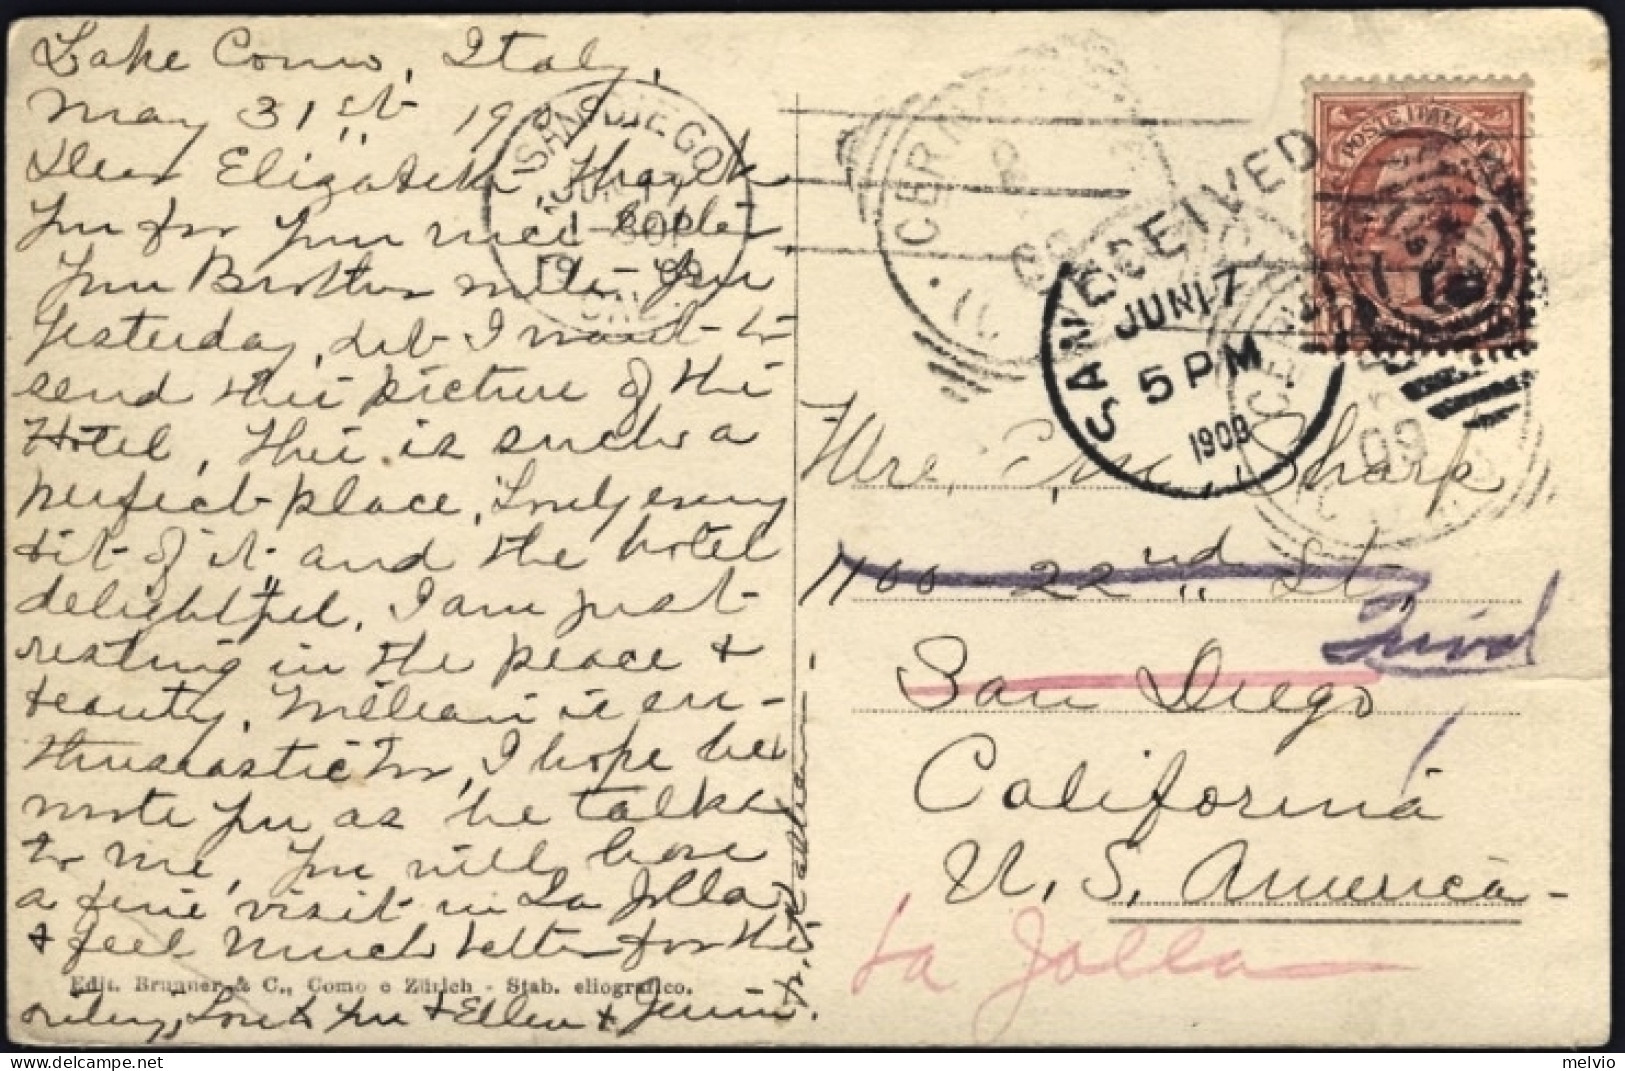 Lake Como, Italy,
May 31st 1909
Dear Elizabeth - Thank
you for your nice letter,
Your Brother wrote you
yesterday, but I want to
send this picture of the
Hotel, this is such a
perfect place, Lovely every
bit of it and the hotel
delightful, I am just
resting in the peace &
beauty, William is en-
thusiastic too, I hope he
wrote you as he talks
to me, you will have
a fine visit in La Jolla
& feel much better for the
outing, Love to you & Ellen & Jennie.
Edit. Brunner & C., Como e Zürich - Stab. eliografico.
SAN DIEGO
JUN 17
1909
CAL.
CERNOBBIO
RECEIVED
SAN DIEGO
JUN 17
5 PM
1909
POSTE ITALIANE
10
CERNOBBIO
09
Mrs. Sharp
1100 - 22nd St,
San Diego
California
U. S. America -
La Jolla
melvio